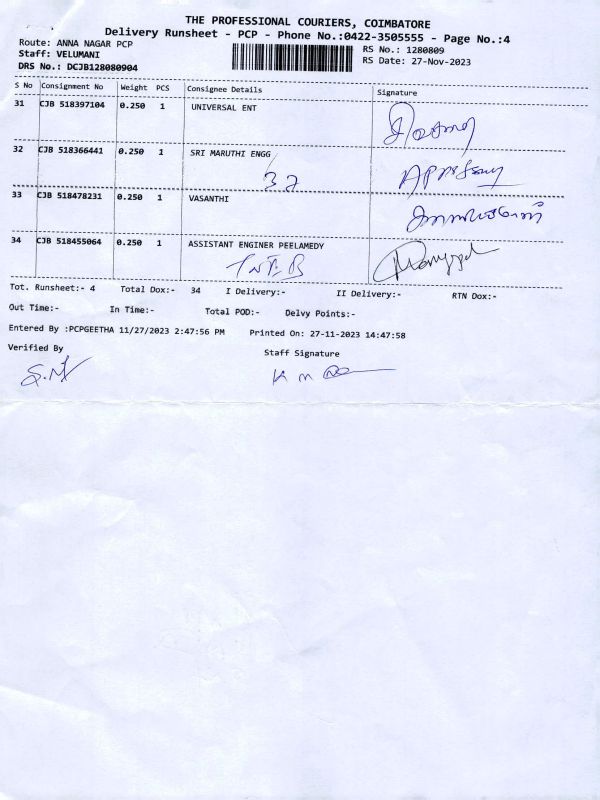 THE PROFESSIONAL COURIERS, COIMBATORE
Delivery Runsheet - PCP - Phone No.:0422-3505555 - Page No.:4
Route: ANNA NAGAR PCP RS No.: 1280809
Staff: VELUMANI RS Date: 27-Nov-2023
DRS No.: DCJB128080904
S No Consignment No Weight PCS Consignee Details Signature
31 CJB 518397104 0.250 1 UNIVERSAL ENT
32 CJB 518366441 0.250 1 SRI MARUTHI ENGG
32
33 CJB 518478231 0.250 1 VASANTHI
34 CJB 518455064 0.250 1 ASSISTANT ENGINER PEELAMEDY
TNEB
Tot. Runsheet:- 4 Total Dox:- 34 I Delivery:- II Delivery:- RTN Dox:-
Out Time:- In Time:- Total POD:- Delvy Points:-
Entered By :PCPGEETHA 11/27/2023 2:47:56 PM Printed On: 27-11-2023 14:47:58
Verified By Staff Signature